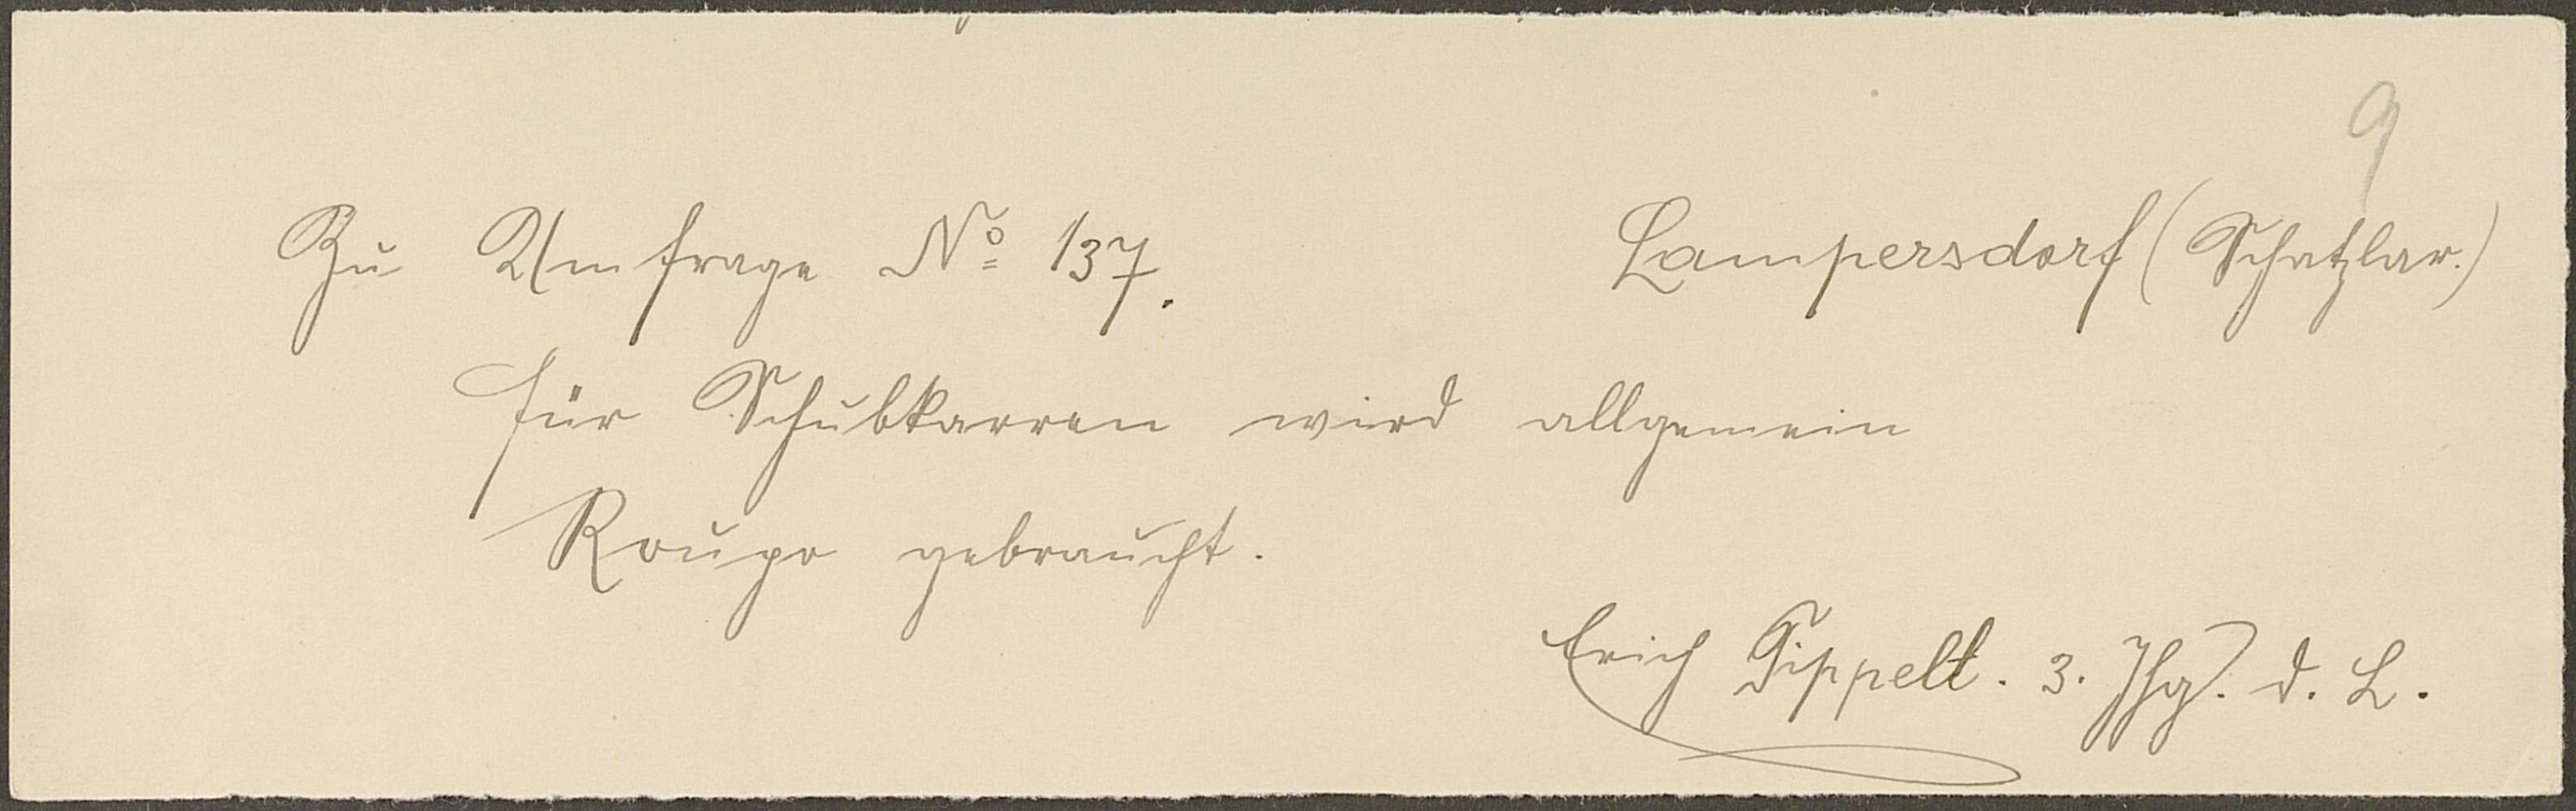 9
Zu Umfrage No 137. Lampersdorf (Schatzlar.)
für Schubkarren wird allgemein
Roupr gebraucht.
Erich Tippelt. 3. Jhg. d. L.